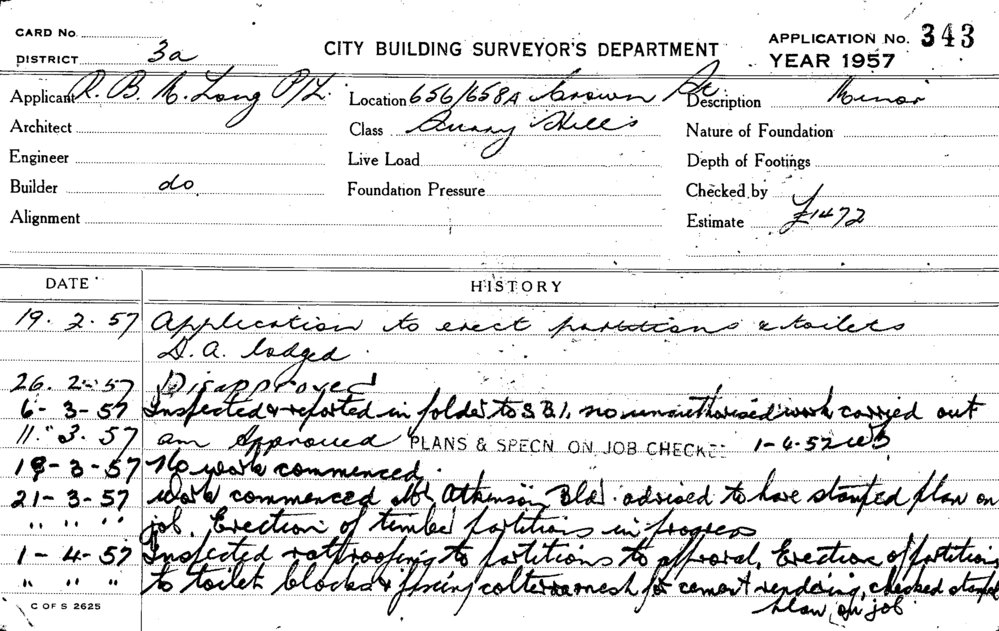 CARD No.
DISTRICT 3a
CITY BUILDING SURVEYOR'S DEPARTMENT
APPLICATION No. 343
YEAR 1957
Applicant R. B. M. Long P/L. Location 656/658A Crown St Description Minor
Architect Class Surry Hills Nature of Foundation
Engineer Live Load Depth of Footings
Builder do. Foundation Pressure Checked by
Alignment Estimate £1472
DATE HISTORY
19. 2. 57 Application to erect partitions & toilets
D.A. lodged.
26. 2. 57 Disapproved
6-3-57 Inspected & reported in folder to S.B.I. no unauthorised work carried out
11. 3. 57 am Approved PLANS & SPECN. ON JOB CHECKED 1-4-57
18-3-57 No work commenced.
21-3-57 Work commenced Mr Atkinson Bldr advised to have stamped plan on
" " " job. Erection of timber partitions in progress
1-4-57 Inspected ratproofing to partitions to approval. Erection of partitions
" " " to toilet blocks & fixing for cement rendering, checked stamped
plan on job.
C OF S 2625